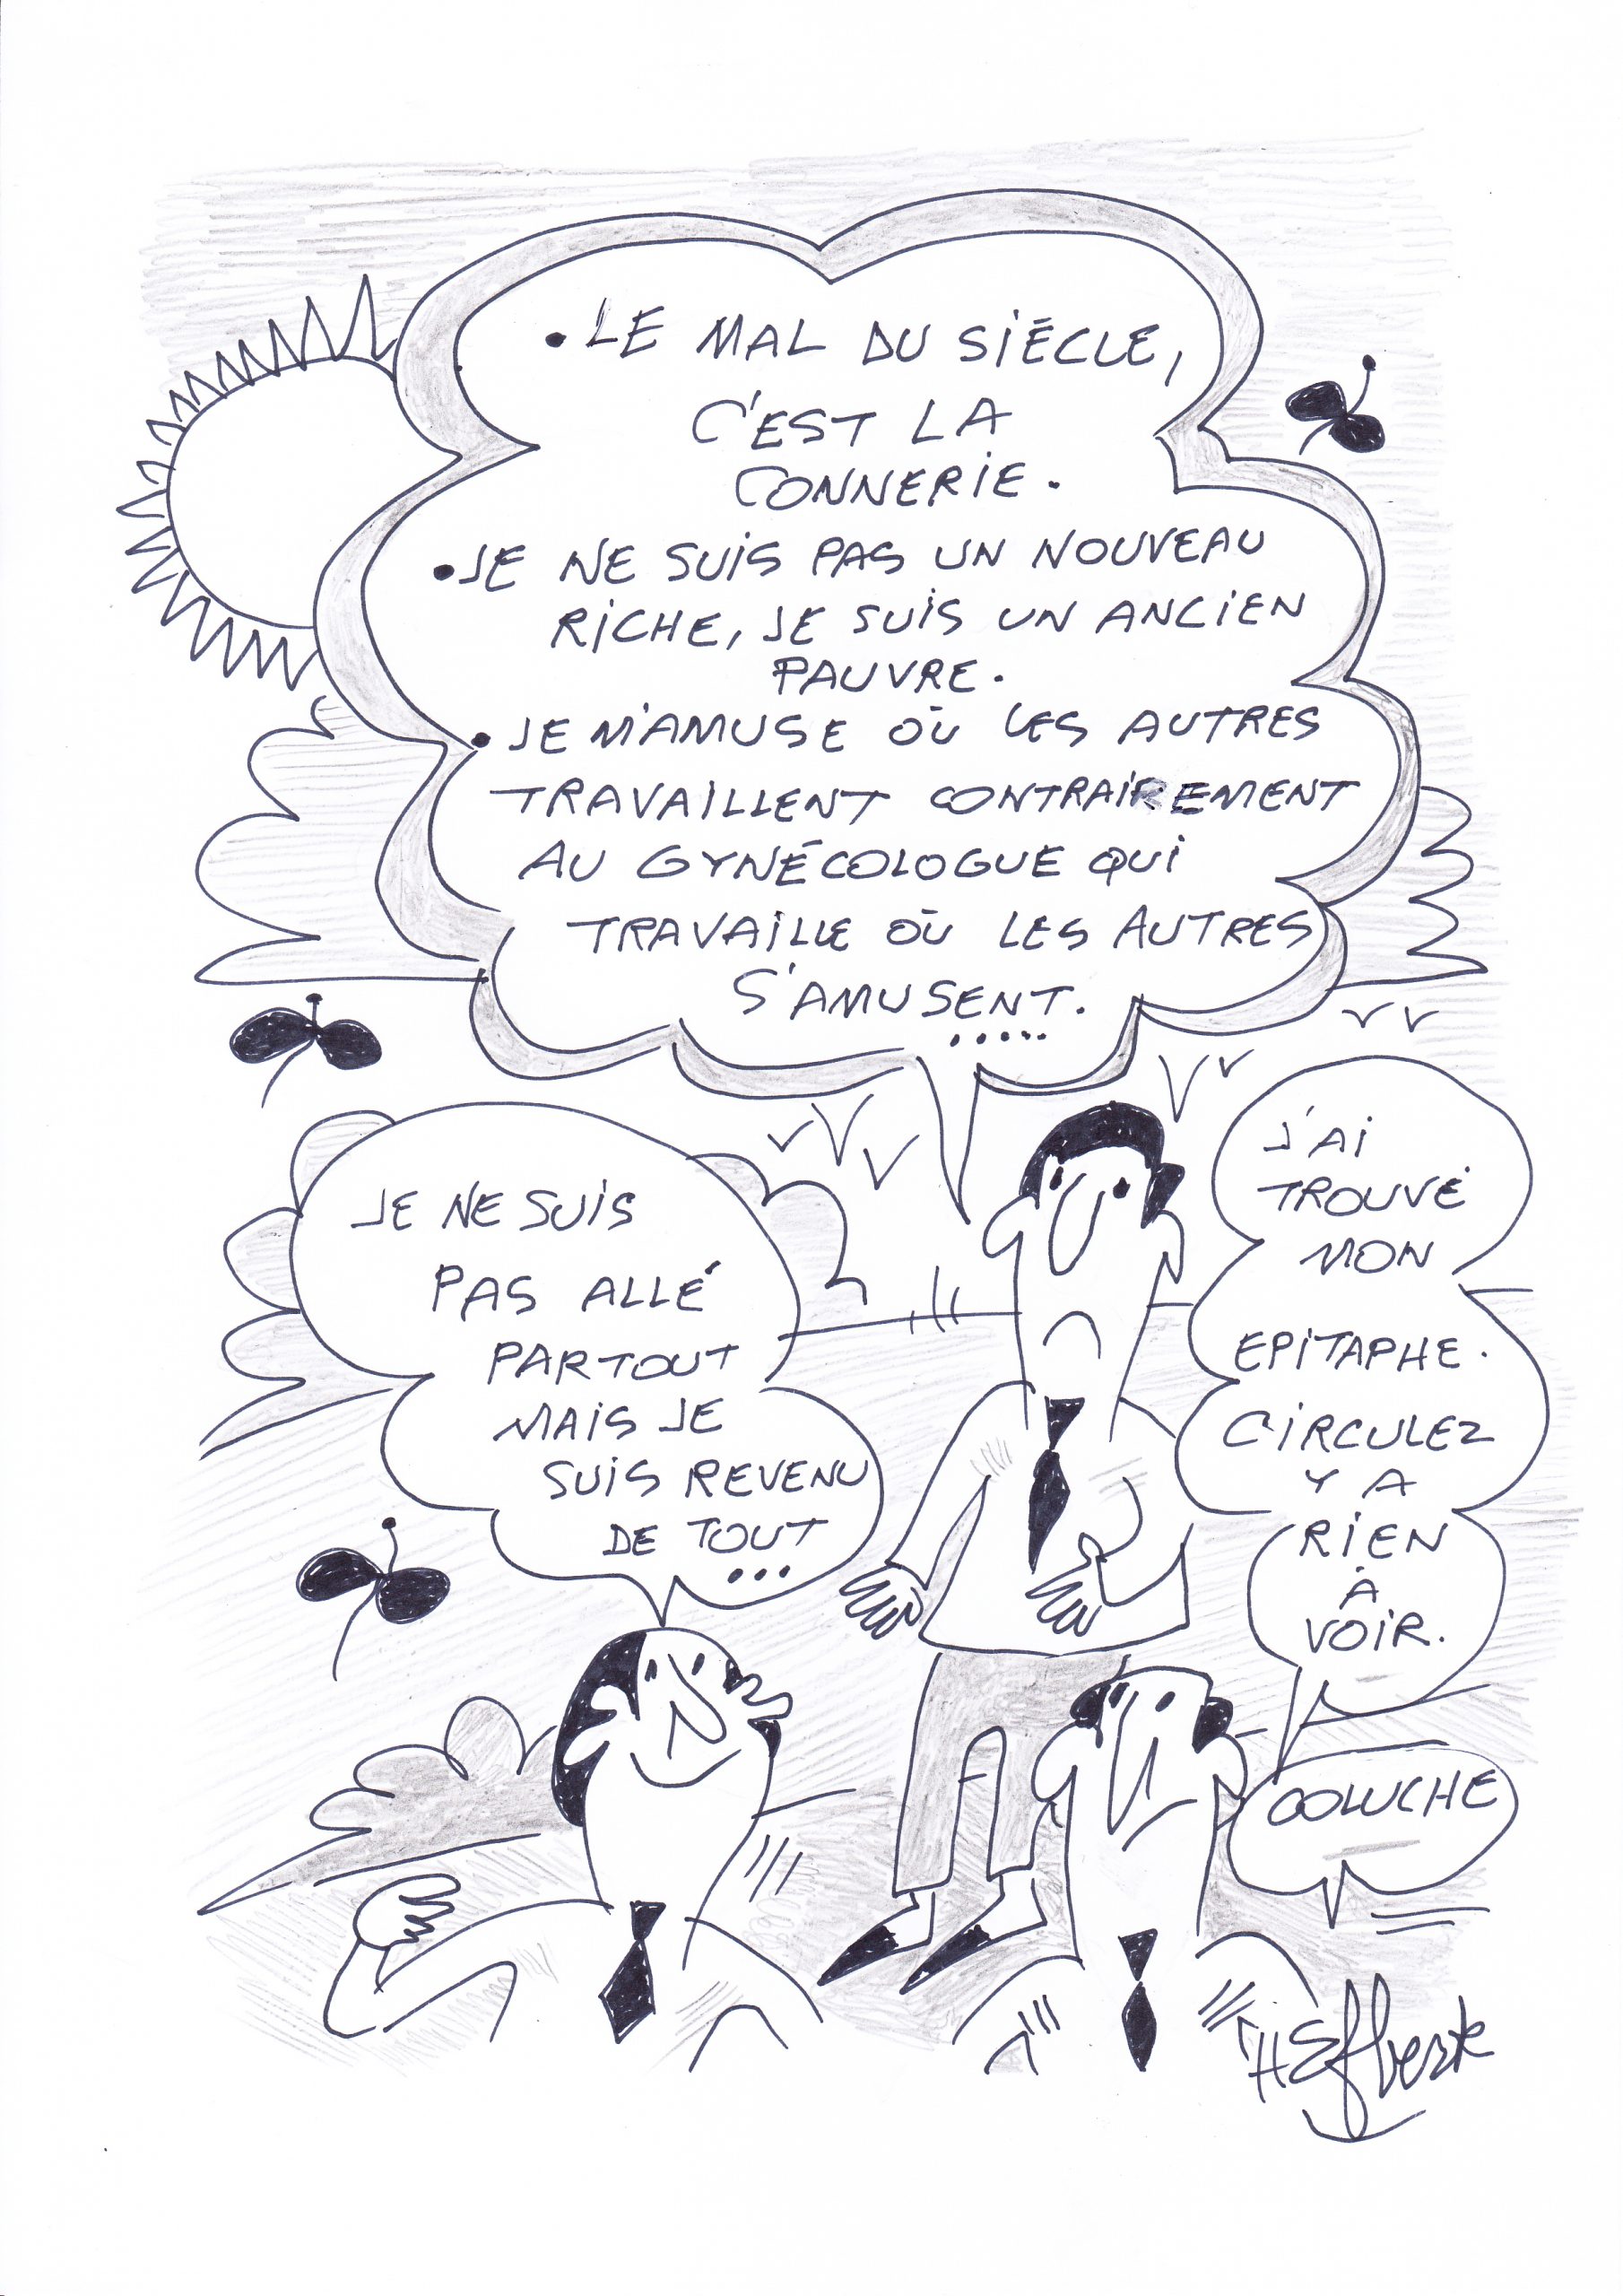 • LE MAL DU SIÈCLE,
C'EST LA
CONNERIE.
• JE NE SUIS PAS UN NOUVEAU
RICHE, JE SUIS UN ANCIEN
PAUVRE.
• JE M'AMUSE OÙ LES AUTRES
TRAVAILLENT CONTRAIREMENT
AU GYNÉCOLOGUE QUI
TRAVAILLE OÙ LES AUTRES
S'AMUSENT.
.....
JE NE SUIS
PAS ALLÉ
PARTOUT
MAIS JE
SUIS REVENU
DE TOUT
...
J'AI
TROUVÉ
MON
EPITAPHE.
CIRCULEZ
Y A
RIEN
À
VOIR.
COLUCHE